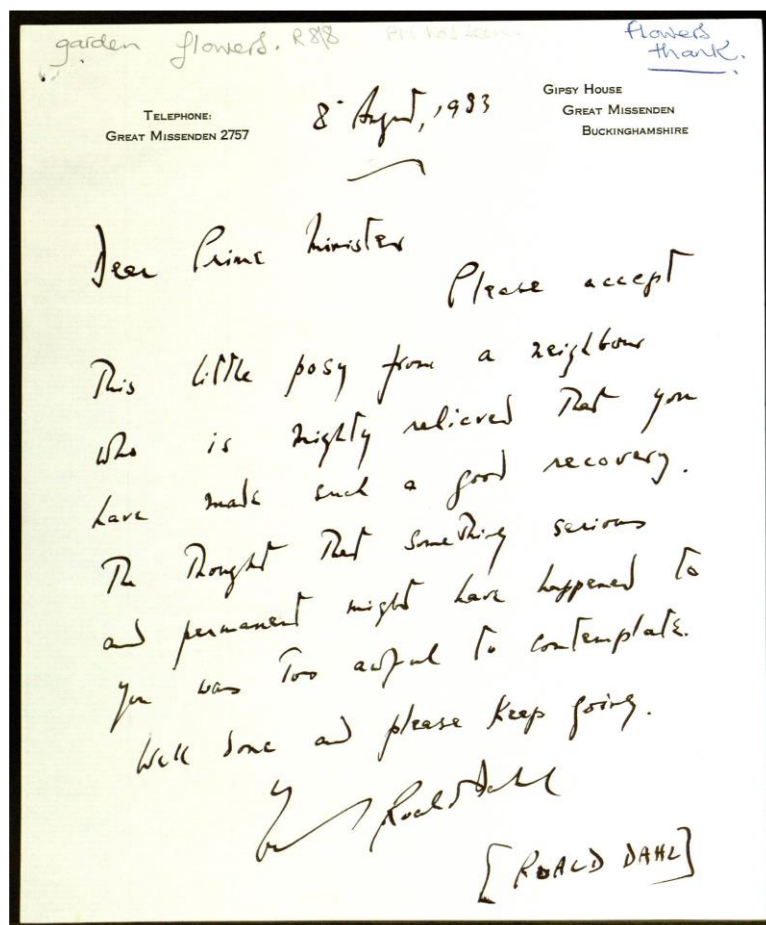 garden flowers. R 8/8 PM has seen.
flowers
thank.
TELEPHONE:
GREAT MISSENDEN 2757
8 August, 1983
GIPSY HOUSE
GREAT MISSENDEN
BUCKINGHAMSHIRE
Dear Prime Minister
Please accept
This little posy from a neighbour
who is mighty relieved That you
have made such a good recovery.
The Thought That something serious
and permanent might have happened to
you was Too awful to contemplate.
Well done and please keep going.
Yours Roald Dahl
[ROALD DAHL]